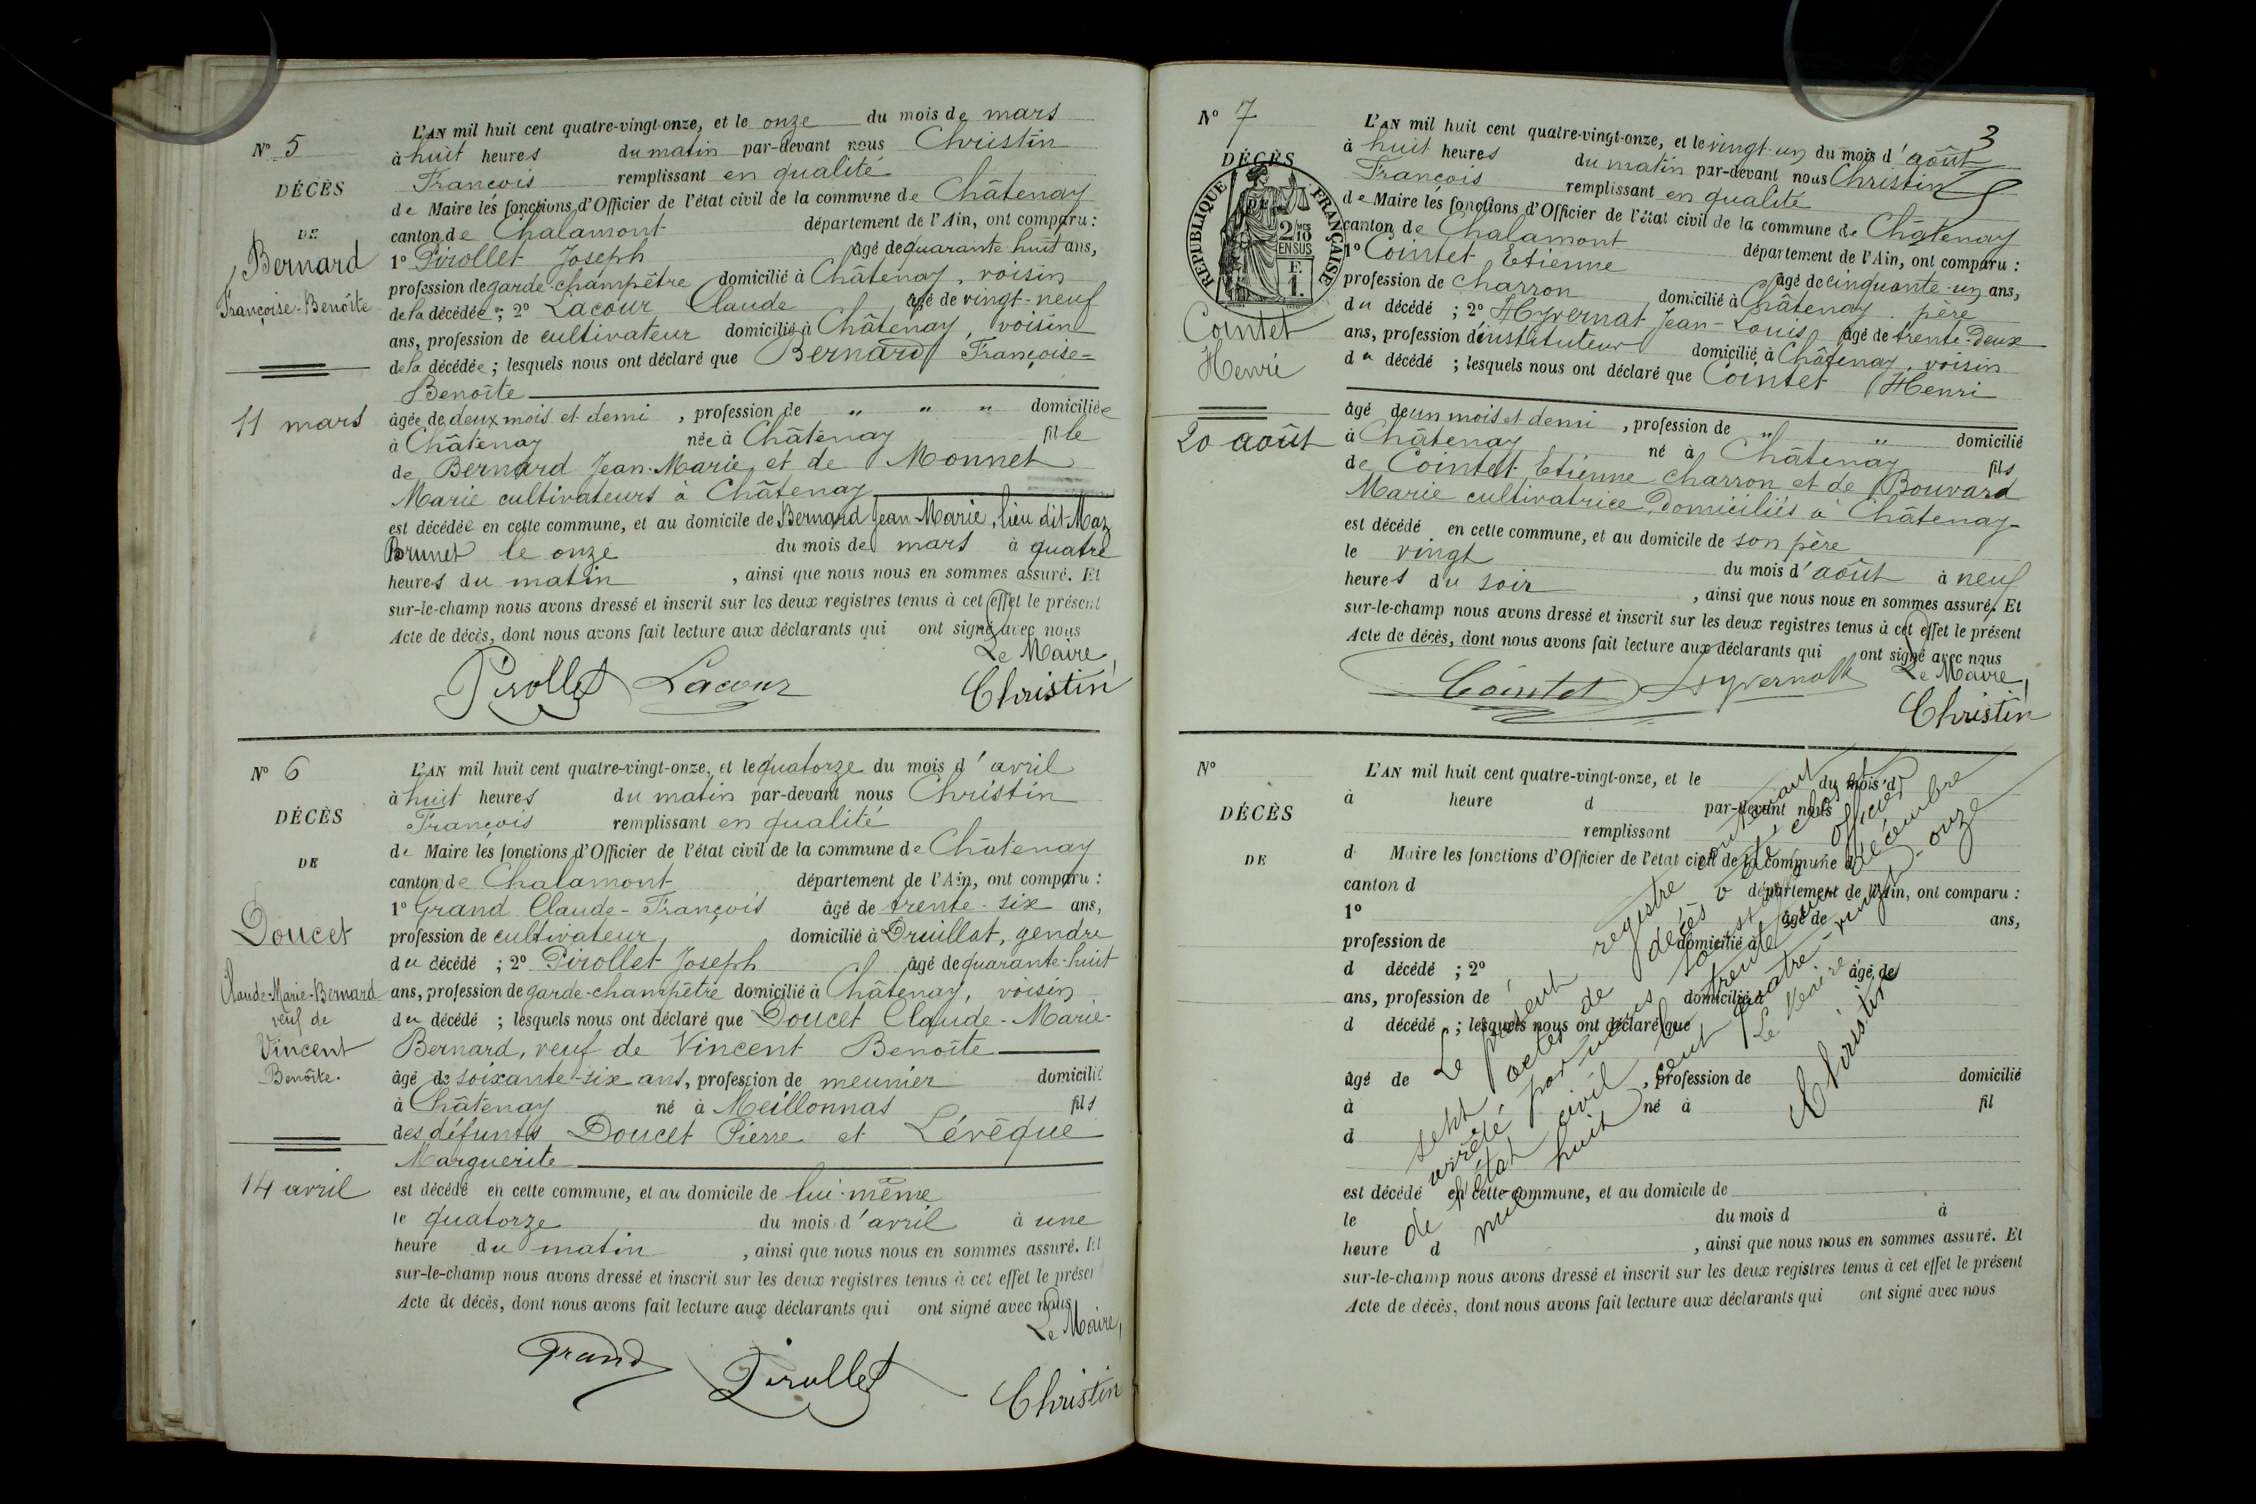 N° 5
DÉCÈS
DE
Bernard
Françoise-Benoîte
11 mars
L'AN mil huit cent quatre-vingt-onze, et le onze du mois de mars
à huit heures du matin par-devant nous Christin
François remplissant en qualité
de Maire les fonctions d'Officier de l'état civil de la commune de Châtenay
canton de Chalamont département de l'Ain, ont comparu :
1° Pirollet Joseph âgé de quarante huit ans,
profession de garde-champêtre domicilié à Châtenay, voisin
de la décédée ; 2° Lacour Claude âgé de vingt-neuf
ans, profession de cultivateur domicilié à Châtenay, voisin
de la décédée ; lesquels nous ont déclaré que Bernard Françoise-
Benoîte
âgée de deux mois et demi , profession de " " " domiciliée
à Châtenay née à Châtenay fille
de Bernard Jean-Marie et de Monnet
Marie cultivateurs à Châtenay
est décédée en cette commune, et au domicile de Bernard Jean-Marie, lieu dit Maz
Brunet le onze du mois de mars à quatre
heures du matin , ainsi que nous nous en sommes assuré. Et
sur-le-champ nous avons dressé et inscrit sur les deux registres tenus à cet effet le présent
Acte de décès, dont nous avons fait lecture aux déclarants qui ont signé avec nous
Le Maire,
Pirollet Lacour Christin
N° 6
DÉCÈS
DE
Doucet
Claude-Marie-Bernard
veuf de
Vincent
Benoîte.
14 avril
L'AN mil huit cent quatre-vingt-onze, et le quatorze du mois d'avril
à huit heures du matin par-devant nous Christin
François remplissant en qualité
de Maire les fonctions d'Officier de l'état civil de la commune de Châtenay
canton de Chalamont département de l'Ain, ont comparu :
1° Grand Claude-François âgé de trente-six ans,
profession de cultivateur domicilié à Druillat, gendre
du décédé ; 2° Pirollet Joseph âgé de quarante-huit
ans, profession de garde-champêtre domicilié à Châtenay, voisin
du décédé ; lesquels nous ont déclaré que Doucet Claude-Marie-
Bernard, veuf de Vincent Benoîte
âgé de soixante-six ans, profession de meunier domicilié
à Châtenay né à Meillonnas fils
des défunts Doucet Pierre et Lévêque
Marguerite
est décédé en cette commune, et au domicile de lui-même
le quatorze du mois d'avril à une
heure du matin , ainsi que nous nous en sommes assuré. Et
sur-le-champ nous avons dressé et inscrit sur les deux registres tenus à cet effet le présent
Acte de décès, dont nous avons fait lecture aux déclarants qui ont signé avec nous
Le Maire,
Grand Pirollet Christin
3
N° 7
DÉCÈS
DE
RÉPUBLIQUE FRANÇAISE
2/10 EN SUS
F.
1.
Cointet
Henri
20 août
L'AN mil huit cent quatre-vingt-onze, et le vingt-un du mois d'août
à huit heures du matin par-devant nous Christin
François remplissant en qualité
de Maire les fonctions d'Officier de l'état civil de la commune de Châtenay
canton de Chalamont département de l'Ain, ont comparu :
1° Cointet Etienne âgé de cinquante-un ans,
profession de charron domicilié à Châtenay, père
du décédé ; 2° Hyvernat Jean-Louis âgé de trente-deux
ans, profession d'instituteur domicilié à Châtenay, voisin
du décédé ; lesquels nous ont déclaré que Cointet Henri
âgé de un mois et demi , profession de " " domicilié
à Châtenay né à Châtenay fils
de Cointet Etienne charron et de Bouvard
Marie cultivatrice, domiciliés à Châtenay
est décédé en cette commune, et au domicile de son père
le vingt du mois d'août à neuf
heures du soir , ainsi que nous nous en sommes assuré. Et
sur-le-champ nous avons dressé et inscrit sur les deux registres tenus à cet effet le présent
Acte de décès, dont nous avons fait lecture aux déclarants qui ont signé avec nous
Le Maire,
Cointet Hyvernat Christin
N°
DÉCÈS
DE
L'AN mil huit cent quatre-vingt-onze, et le du mois d
à heure d par-devant nous
remplissant
d Maire les fonctions d'Officier de l'état civil de la commune d
canton d département de l'Ain, ont comparu :
1° âgé de ans,
profession de domicilié à
d décédé ; 2° âgé de
ans, profession de domicilié à
d décédé ; lesquels nous ont déclaré que
âgé de , profession de domicilié
à né à fil
d
est décédé en cette commune, et au domicile de
le du mois d à
heure d , ainsi que nous nous en sommes assuré. Et
sur-le-champ nous avons dressé et inscrit sur les deux registres tenus à cet effet le présent
Acte de décès, dont nous avons fait lecture aux déclarants qui ont signé avec nous
Le présent registre contenant
sept actes de décès a été clos et
arrêté par nous soussigné officier
de l'état civil le trente-un décembre
mil huit cent quatre-vingt-onze
Le Maire,
Christin